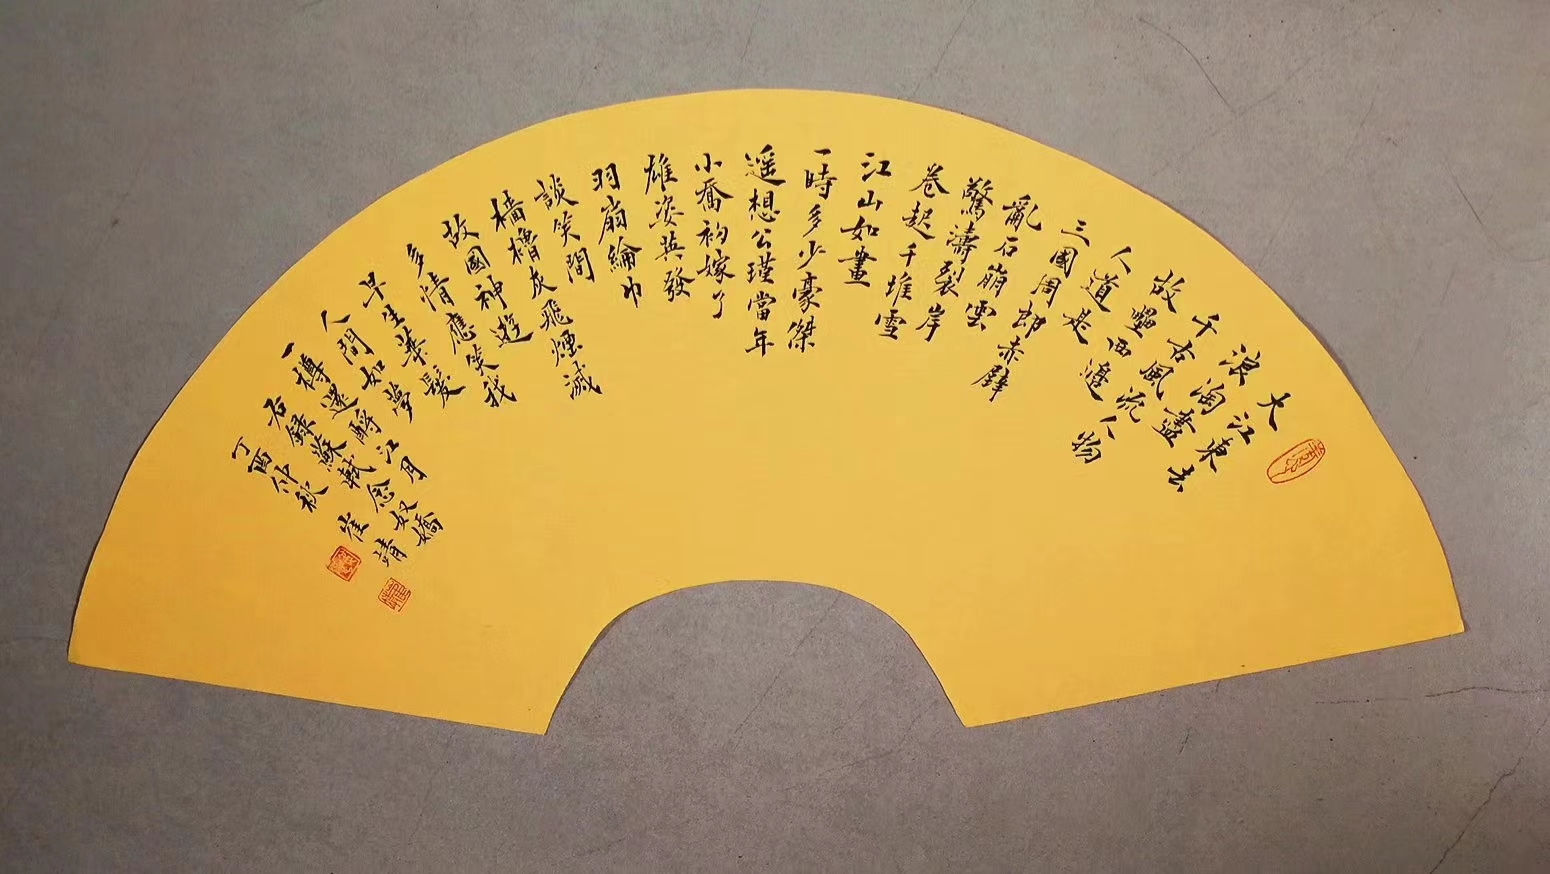 大江東去
浪淘盡
千古風流人物
故壘西邊
人道是
三國周郎赤壁
亂石崩雲
驚濤裂岸
卷起千堆雪
江山如畫
一時多少豪傑
遥想公瑾當年
小喬初嫁了
雄姿英發
羽扇綸巾
談笑間
檣櫓灰飛煙滅
故國神遊
多情應笑我
早生華髮
人間如夢
一樽還酹江月
右録蘇軾念奴嬌
丁酉仲秋 崔靖